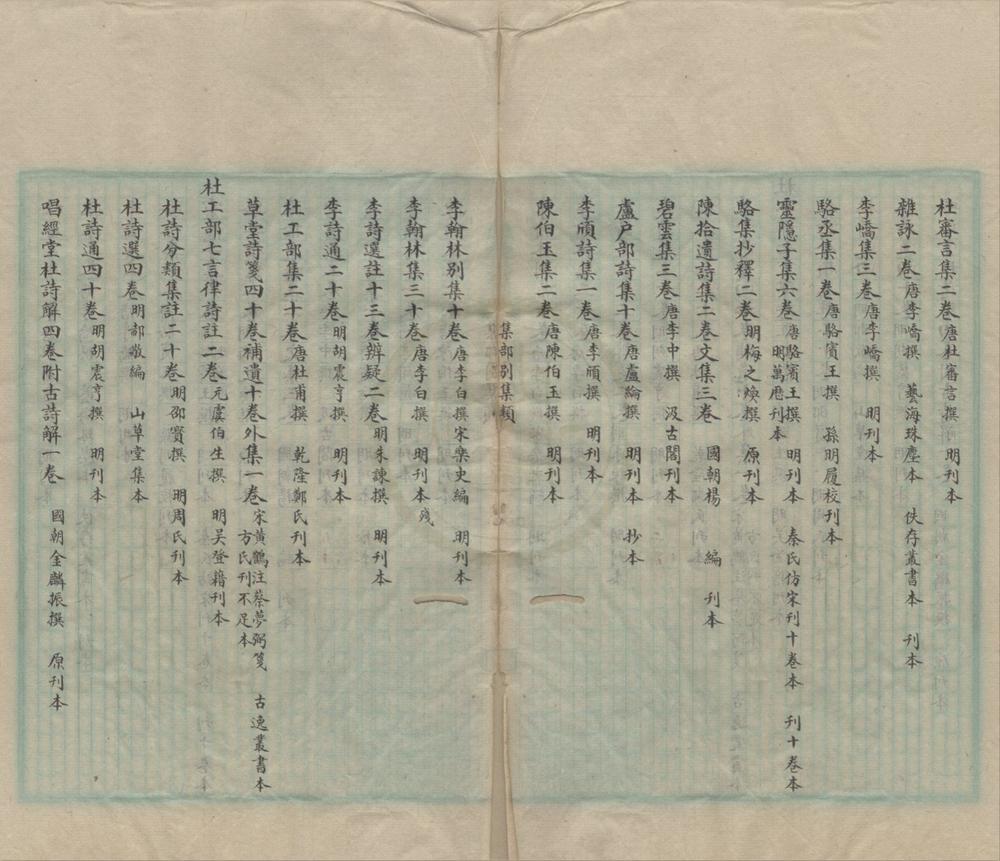 杜審言集二卷唐杜審言撰 明刊本
雜詠二卷唐李嶠撰 藝海珠塵本 佚存叢書本 刊本
李嶠集三卷唐李嶠撰 明刊本
駱丞集一卷唐駱賓王撰 孫明履校刊本
靈隱子集六卷唐駱賓王撰 明刊本 秦氏仿宋刊十卷本 刊十卷本
明萬曆刊本
駱集抄釋二卷明梅之煥撰 原刊本
陳拾遺詩集二卷文集三卷 國朝楊 編 刊本
碧雲集三卷唐李中撰 汲古閣刊本
盧戶部詩集十卷唐盧綸撰 明刊本 抄本
李頎詩集一卷唐李頎撰 明刊本
陳伯玉集二卷唐陳伯玉撰 明刊本
集部別集類
李翰林別集十卷唐李白撰宋樂史編 明刊本
李翰林集三十卷唐李白撰 明刊本殘
李詩選註十三卷辨疑二卷明朱諫撰 明刊本
李詩通二十卷明胡震亨撰 明刊本
杜工部集二十卷唐杜甫撰 乾隆鄭氏刊本
草堂詩箋四十卷補遺十卷外集一卷宋黃鶴注蔡夢弼箋 古逸叢書本
方氏刊不足本
杜工部七言律詩註二卷元虞伯生撰 明吳登籍刊本
杜詩分類集註二十卷明邵寶撰 明周氏刊本
杜詩選四卷明郝敬編 山草堂集本
杜詩通四十卷明胡震亨撰 明刊本
唱經堂杜詩解四卷附古詩解一卷 國朝金麟振撰 原刊本